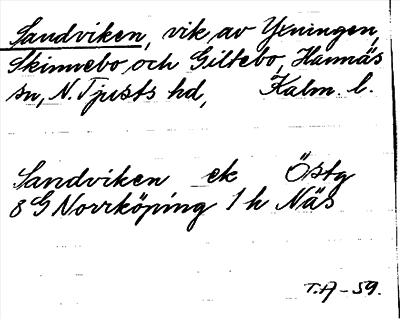 Sandviken, vik av Yxningen,
Skinnebo och Giltebo, Hannäs
sn, N. Tjusts hd, Kalm. l.
Sandviken ek Östg
8G Norrköping 1 h Näs
T.A-59.